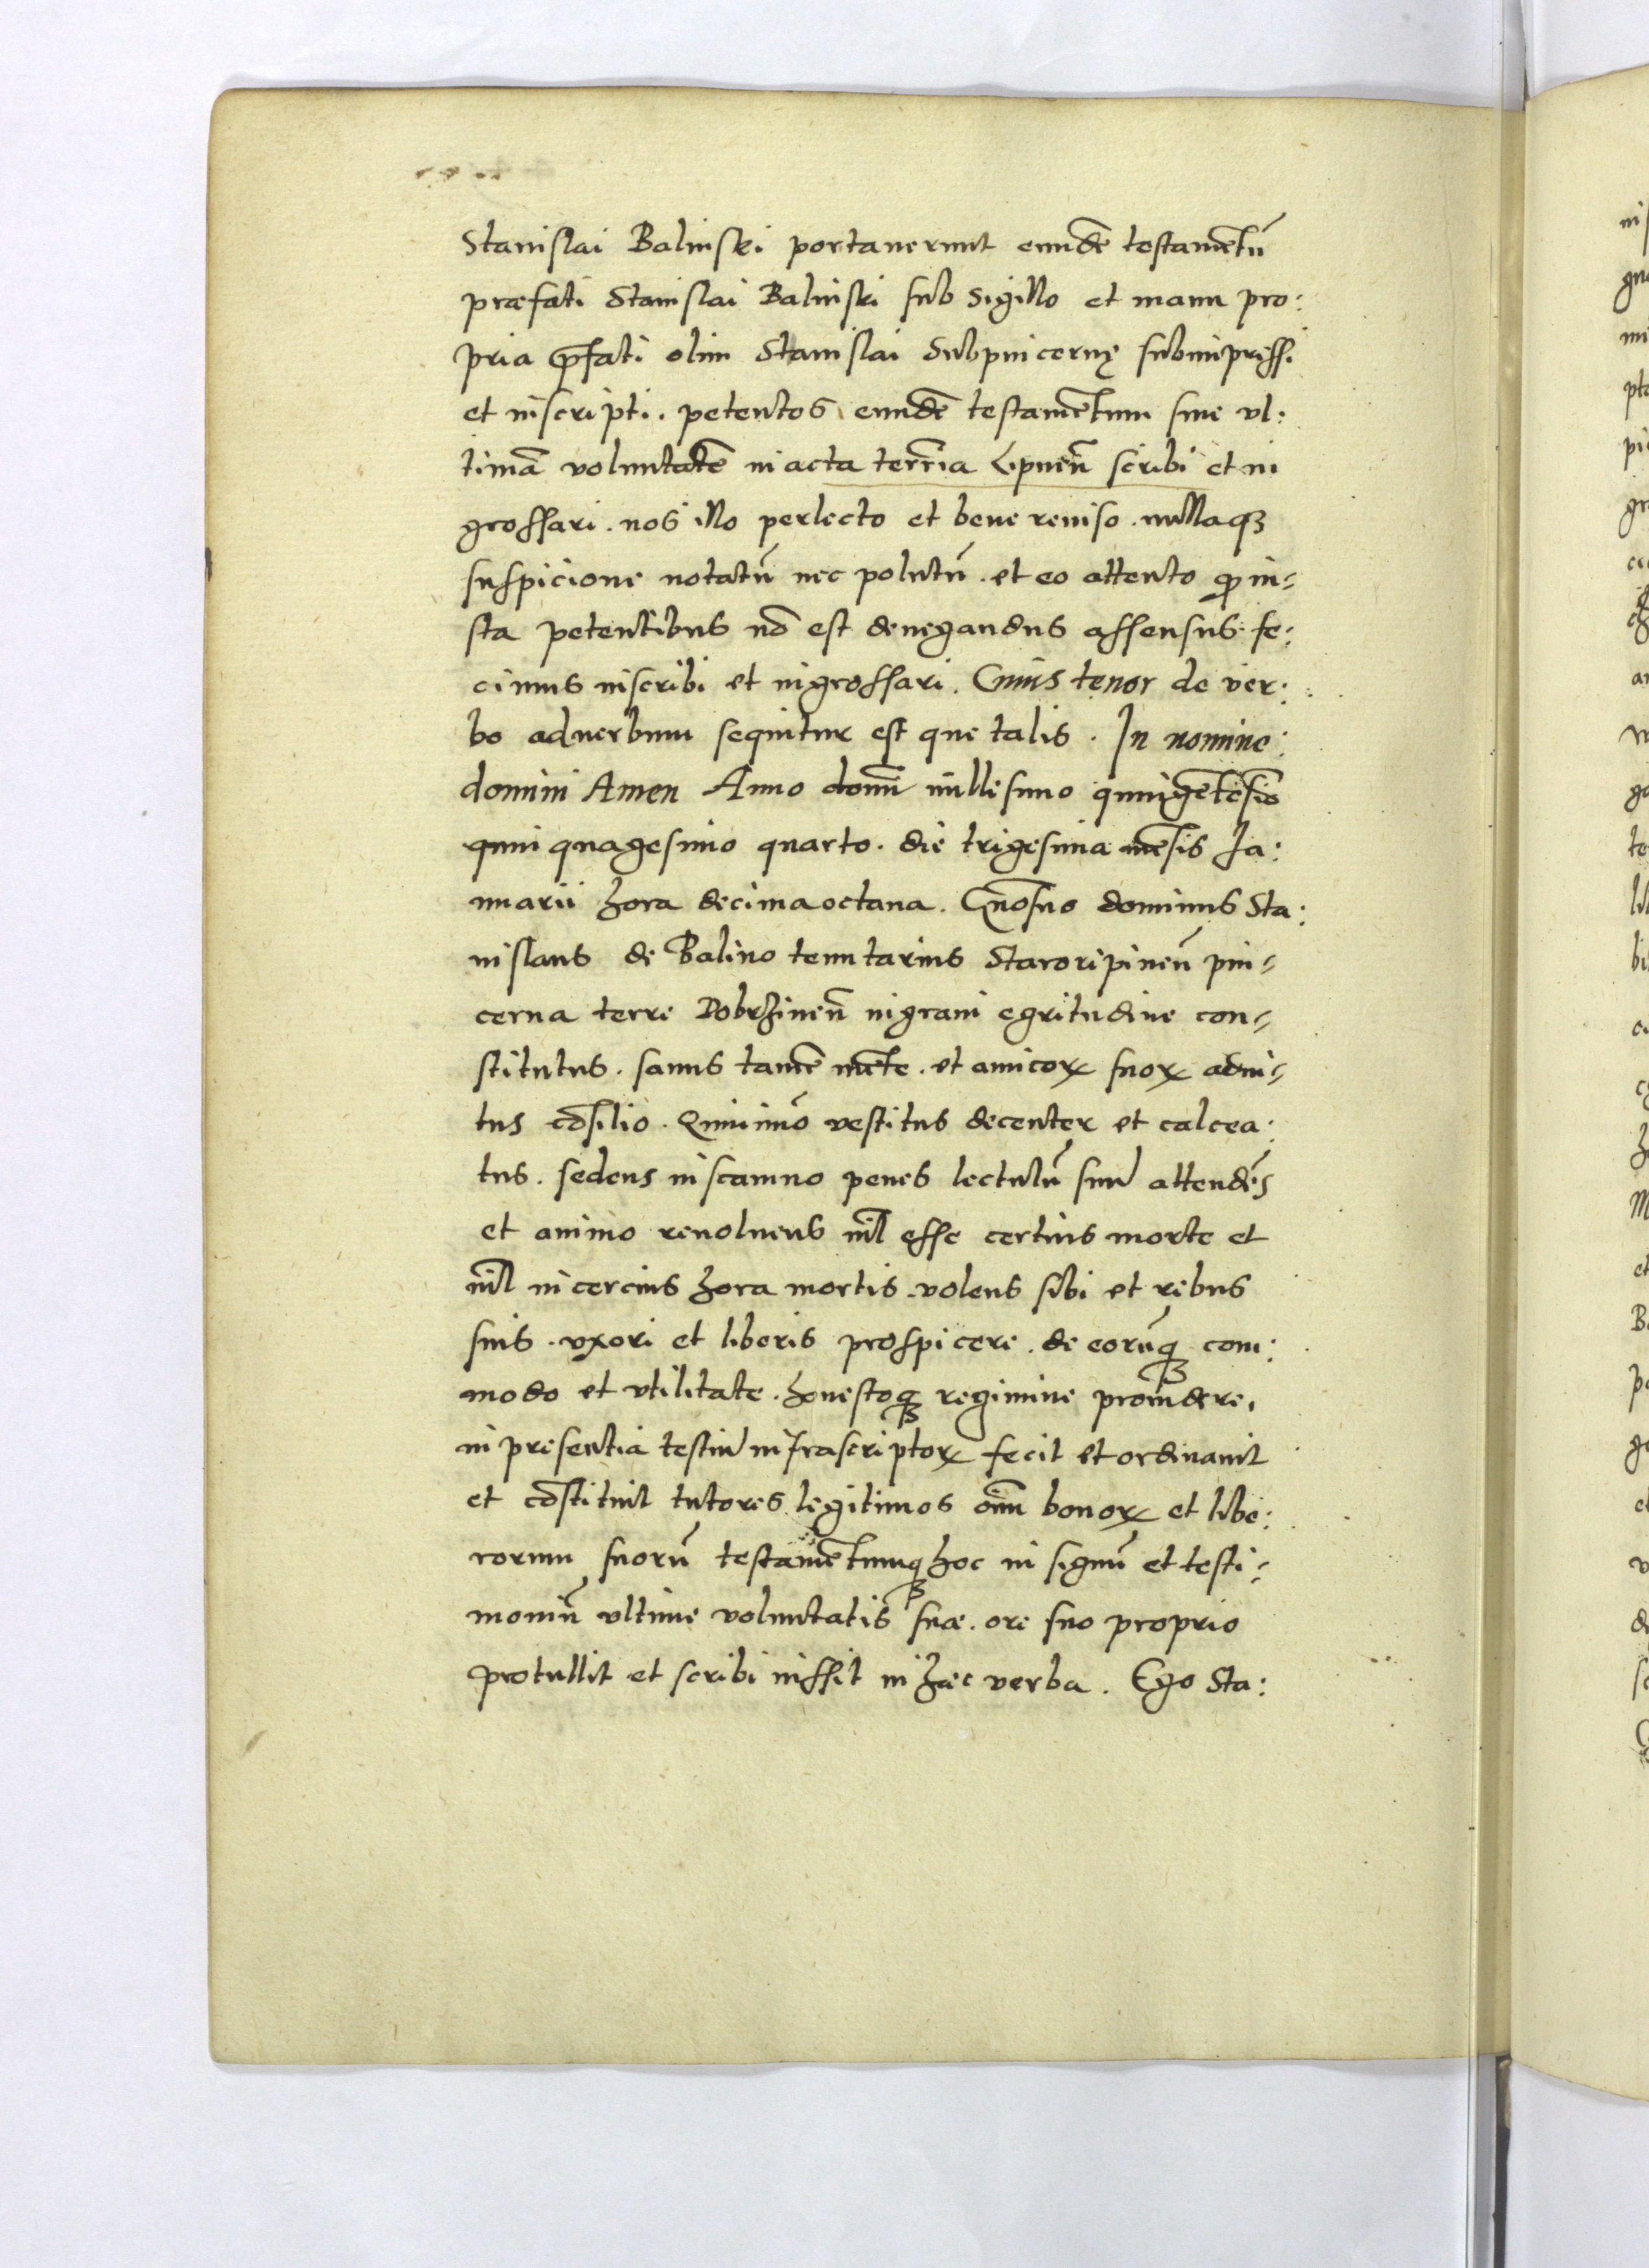 Stanislai Balinski portauerunt eundē testamētū
præfati Stanislai Balinski sub sigillo et manu pro:
pria p̄fati olim Stanislai Subpincernę subimpressi
et inscripti. petentes eundē testamētum siue vl:
timā voluntatē in acta terr̄ia Lipnen̄ scribi et in
grossari. nos illo perlecto et bene reuiso. nullaqꝫ
suspicione notatū nec polutū. et eo attento ꝙ iu-
sta petentibus nō est denegandus assensus. fe:
cimus inscribi et ingrossari. Cuius tenor de ver:
bo aduerbum sequitur est que talis. In nomine:
domini Amen Anno domī millesimo quingētesīo
quinquagesimo quarto. die trigesima mēsis Ja:
nuarii hora decimaoctaua. Gnōsus dominus Sta:
nislaus de Balino tenutarius Staroripinen̄ pin-
cerna terre Dobrzinen̄ ingraui egritudine con-
stitutus. sanus tamē mēte. et amicoꝝ suoꝝ adui-
tus cōsilio. Quinimō vestitus decenter et calcea:
tus. sedens in scamno penes lectulū suū attendēs
et animo reuoluens nīl esse certius morte et
nīl incercius hora mortis. volens sibi et rebus
suis. vxori et liberis prospicere. de eorūqꝫ com:
modo et vtilitate. honestoqꝫ regimine prouidere.
in presentia testiū infrascriptoꝝ fecit et ordinauit
et cōstituit tutores legitimos oīm bonoꝝ et libe:
rorum suorū testamētumqꝫ hoc in signū et testi-
moniū vltime voluntatis suæ. ore suo proprio
protullit et scribi iussit in hæc verba. Ego Sta: